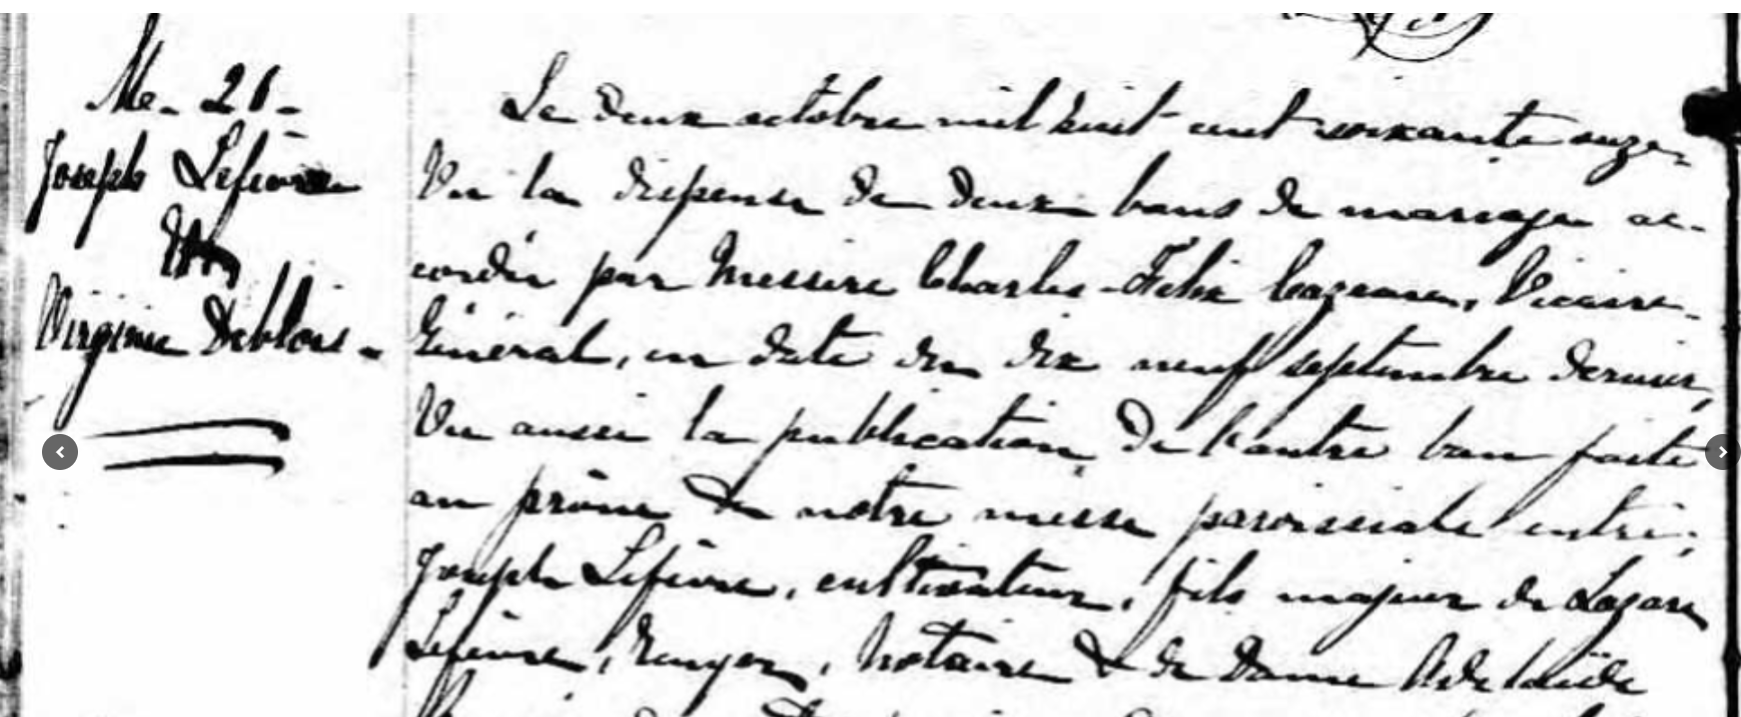 Me. 21.
Joseph Lefèvre
&
Virginie Deblois.
Le deux octobre mil huit cent soixante onze,
Vu la dispense de deux bans de mariage ac-
cordée par Messire Charles-Félix Cazeau, Vicaire-
Général, en date du dix neuf septembre dernier,
Vu aussi la publication de l'autre ban faite
au prône de notre messe paroissiale entre;
Joseph Lefèvre, cultivateur, fils majeur de Lazare
Lefèvre, Ecuyer, Notaire & de Dame Adelaïde